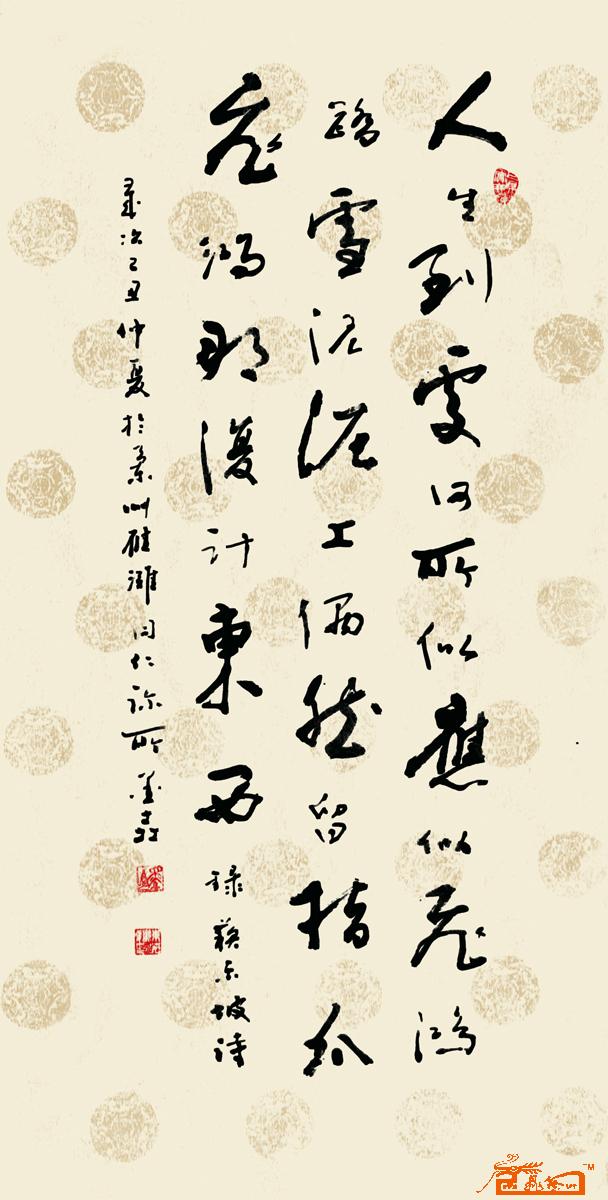 人生到處何所似應似飛鴻
踏雪泥泥上偶然留指爪
飛鴻那復計東西 錄蘇東坡詩
歲次己丑仲夏於蘭州雁灘同仁診所